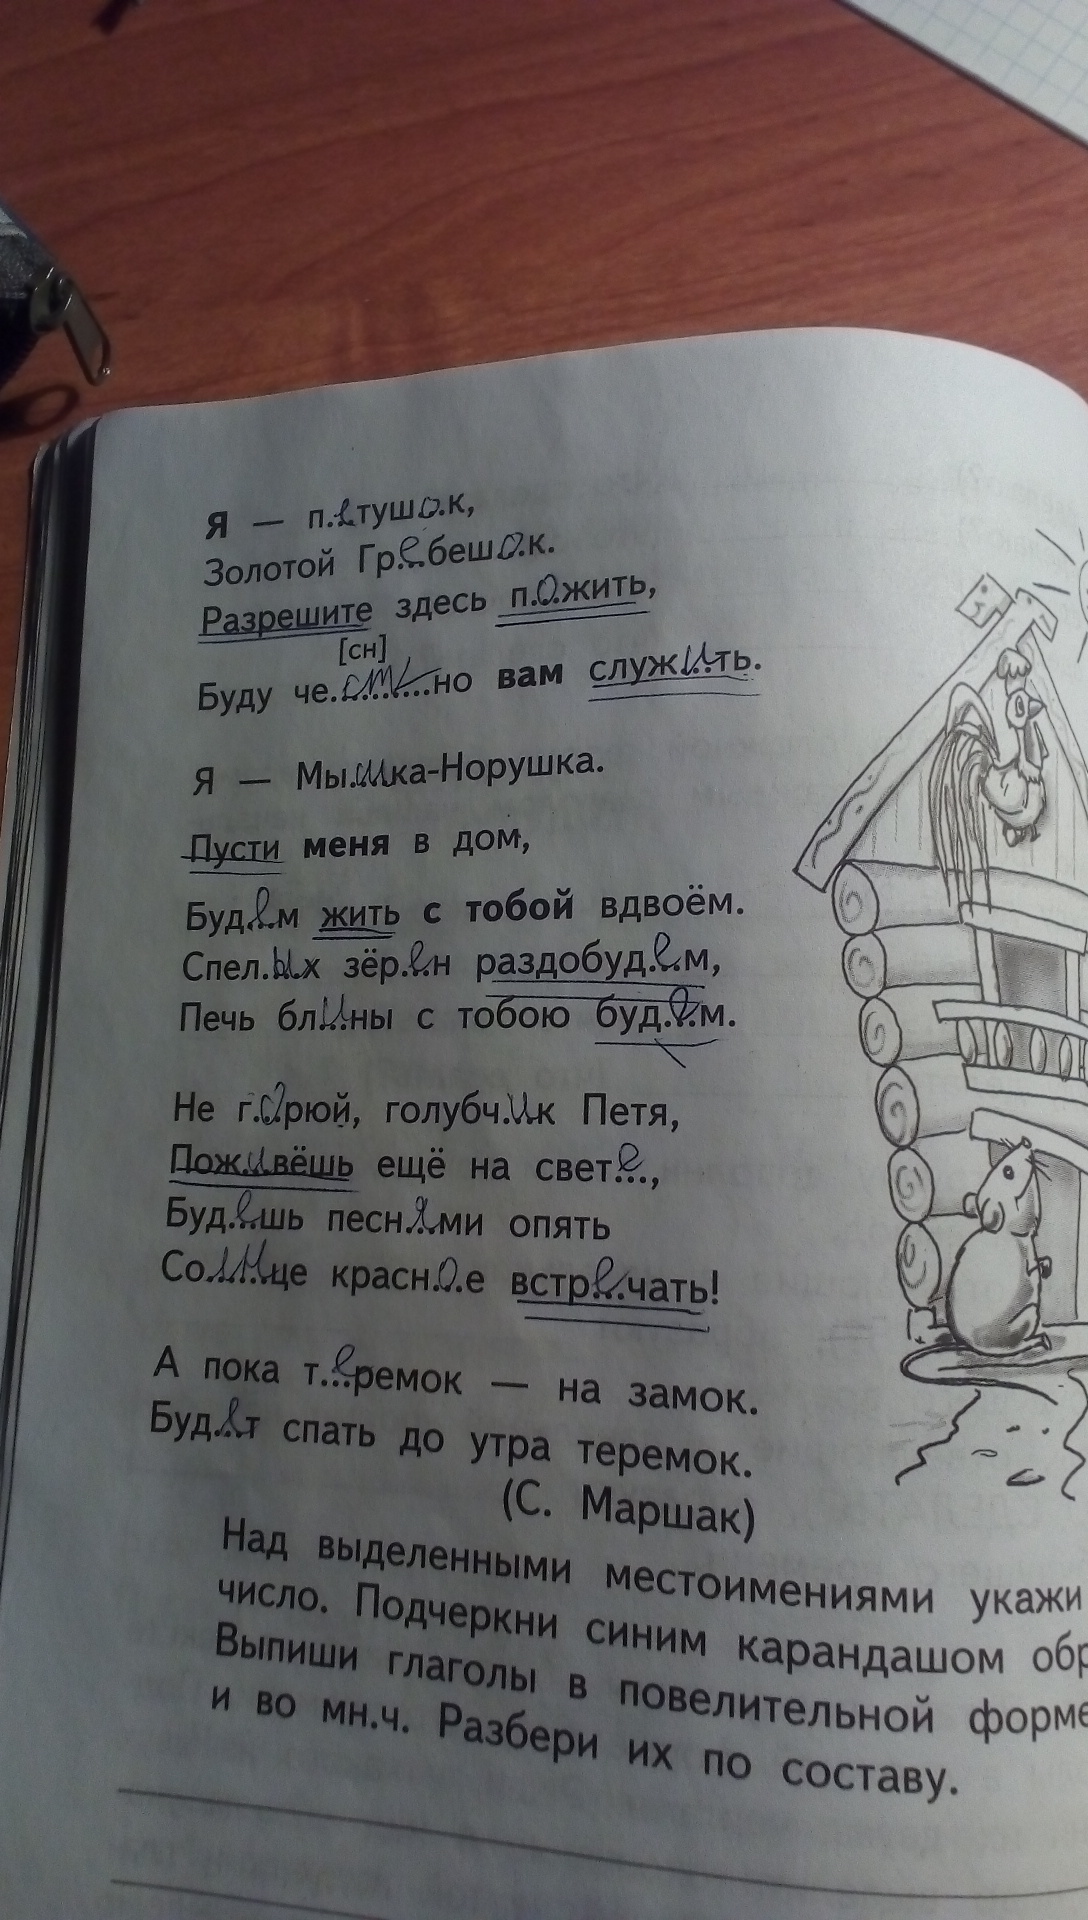 Я — п.е.туш.о.к,
Золотой Гр.е.беш.о.к.
Разрешите здесь п.о.жить,
[сн]
Буду че.стн...но вам служ.и.ть.
Я — Мы.ш.ка-Норушка.
Пусти меня в дом,
Буд.е.м жить с тобой вдвоём.
Спел.ы.х зёр.е.н раздобуд.е.м,
Печь бл.и.ны с тобою буд.е.м.
Не г.о.рюй, голубч.и.к Петя,
Пож.и.вёшь ещё на свет.е..,
Буд.е.шь песн.я.ми опять
Со.лн.це красн.о.е встр.е.чать!
А пока т.е..ремок — на замок.
Буд.е.т спать до утра теремок.
(С. Маршак)
Над выделенными местоимениями укажи
число. Подчеркни синим карандашом обр
Выпиши глаголы в повелительной форме
и во мн.ч. Разбери их по составу.